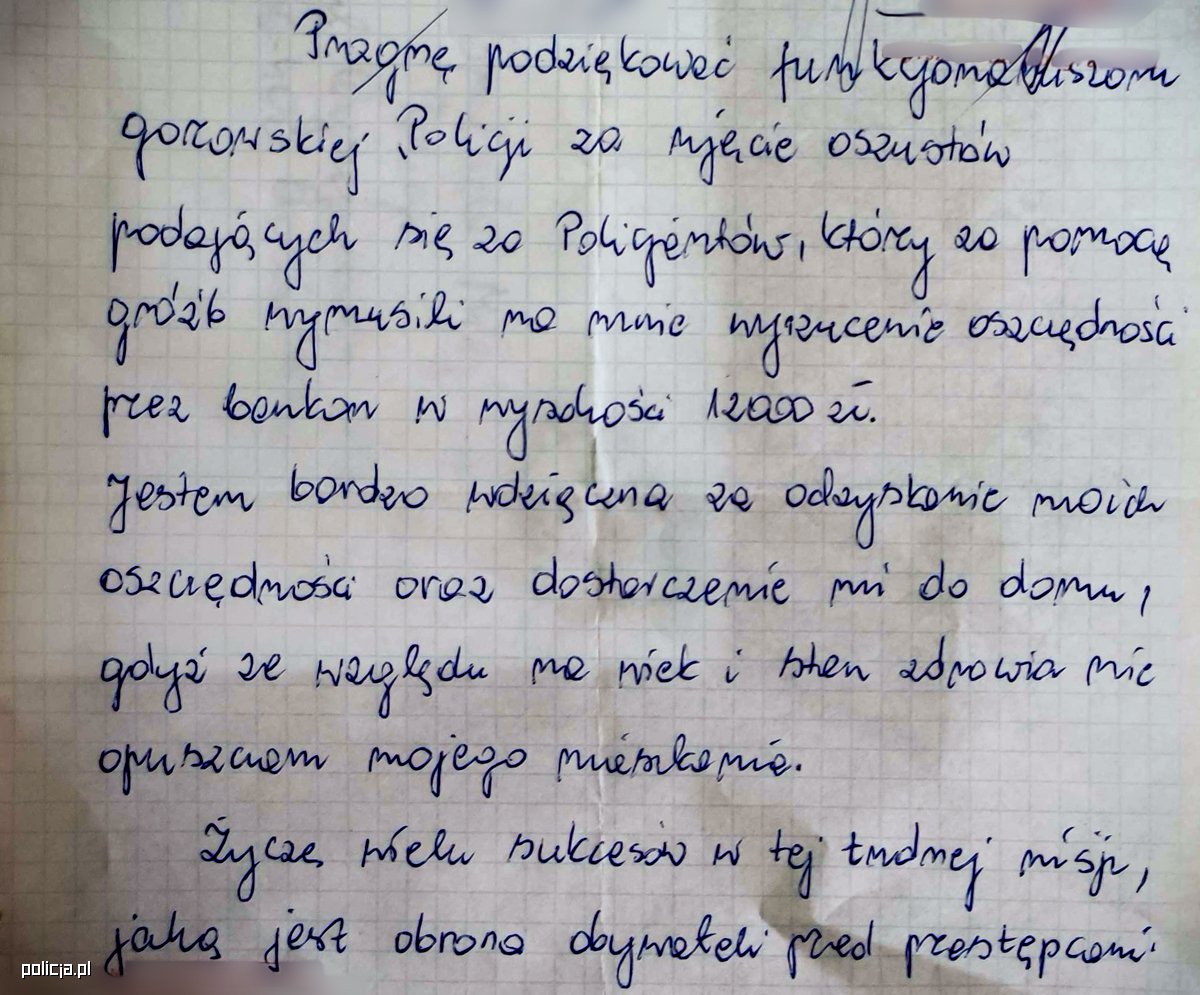 Pragnę podziękować funkcjonariuszom
gorzowskiej Policji za ujęcie oszustów
podających się za Policjantów, którzy za pomocą
gróźb wymusili na mnie wyrzucenie oszczędności
przez balkon w wysokości 12000 zł.
Jestem bardzo wdzięczna za odzyskanie moich
oszczędności oraz dostarczenie mi do domu,
gdyż ze względu na wiek i stan zdrowia nie
opuszczam mojego mieszkania.
Życzę wielu sukcesów w tej trudnej misji,
jaką jest obrona obywateli przed przestępcami.
policja.pl